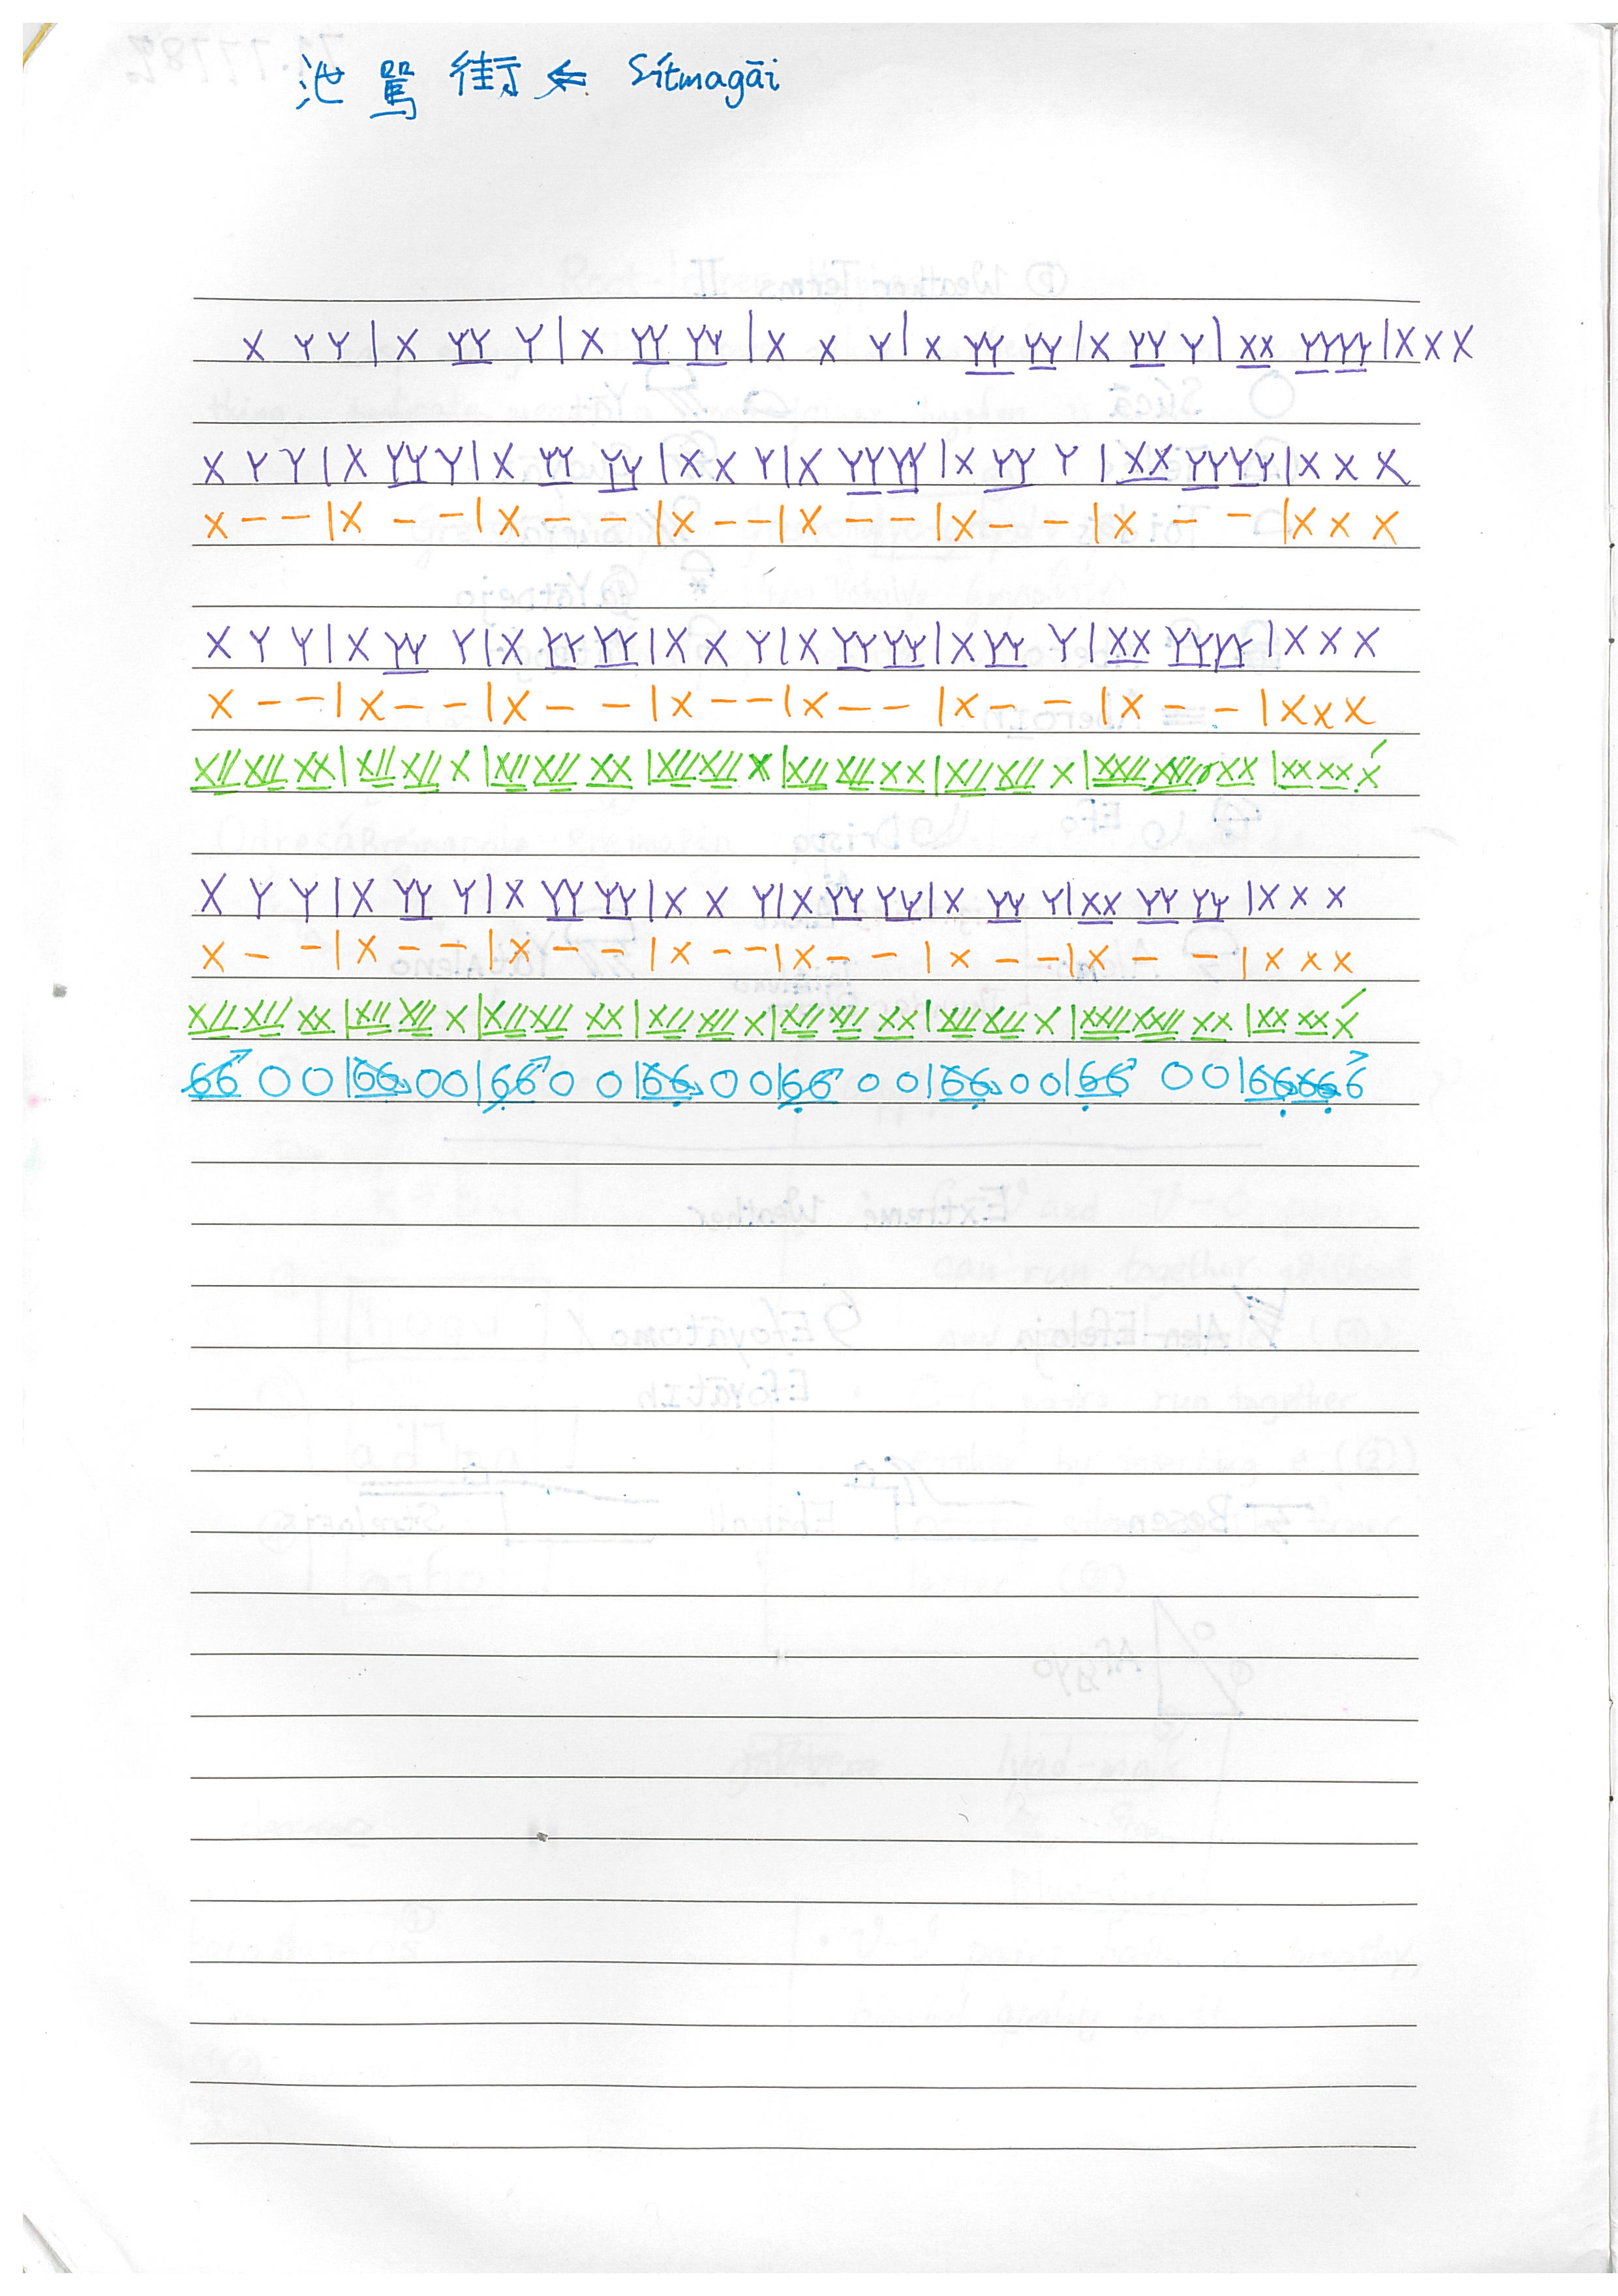 池駡街 ⇐ Sítmagāi
X Y Y | X YY Y | X YY YY | X X Y | X YY YY | X YY Y | XX YYYY | X X X
X Y Y | X YY Y | X YY YY | X X Y | X YY YY | X YY Y | XX YYYY | X X X
X – – | X – – | X – – | X – – | X – – | X – – | X – – | X X X
X Y Y | X YY Y | X YY YY | X X Y | X YY YY | X YY Y | XX YYYY | X X X
X – – | X – – | X – – | X – – | X – – | X – – | X – – | X X X
X// X// XX | X// X// X | X// X// XX | X// X// X | X// X// XX | X// X// X | XX// XX// XX | XX XX X
X Y Y | X YY Y | X YY YY | X X Y | X YY YY | X YY Y | XX YY YY | X X X
X – – | X – – | X – – | X – – | X – – | X – – | X – – | X X X
X// X// XX | X// X// X | X// X// XX | X// X// X | X// X// XX | X// X// X | XX// XX// XX | XX XX X
66 O O | 66 O O | 66 O O | 66 O O | 66 O O | 66 O O | 66 O O | 66 66 6